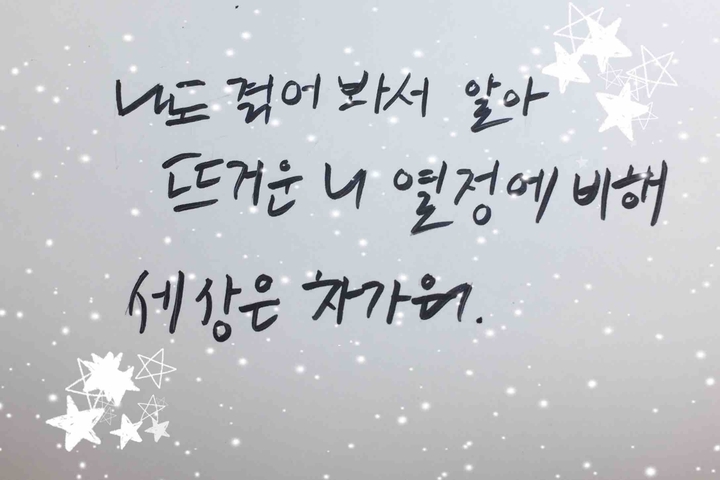 나도 겪어 봐서 알아
뜨거운 너 열정에 비해
세상은 차가워.